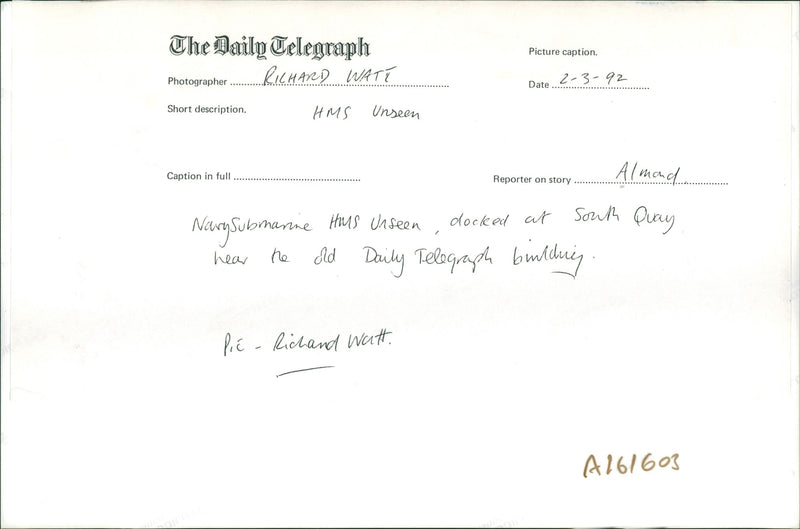 The Daily Telegraph
Picture caption.
Photographer RICHARD WATT
Date 2-3-92
Short description. HMS Unseen
Caption in full
Reporter on story Almond
Navy Submarine HMS Unseen, docked at South Quay
near the old Daily Telegraph building.
Pic - Richard Watt.
A161603